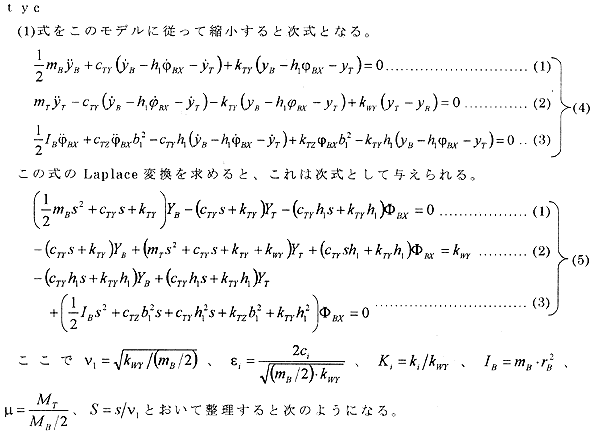 tyc
(1)式をこのモデルに従って縮小すると次式となる。
\frac{1}{2}m_B\ddot{y}_B+c_{TY}(\dot{y}_B-h_1\dot{\varphi}_{BX}-\dot{y}_T)+k_{TY}(y_B-h_1\varphi_{BX}-y_T)=0 ……………………… (1)
m_T\ddot{y}_T-c_{TY}(\dot{y}_B-h_1\dot{\varphi}_{BX}-\dot{y}_T)-k_{TY}(y_B-h_1\varphi_{BX}-y_T)+k_{WY}(y_T-y_R)=0 ………… (2)
(4)
\frac{1}{2}I_B\ddot{\varphi}_{BX}+c_{TZ}\ddot{\varphi}_{BX}b_1^2-c_{TY}h_1(\dot{y}_B-h_1\dot{\varphi}_{BX}-\dot{y}_T)+k_{TZ}\varphi_{BX}b_1^2-k_{TY}h_1(y_B-h_1\varphi_{BX}-y_T)=0 ‥ (3)
この式の Laplace 変換を求めると、これは次式として与えられる。
\left(\frac{1}{2}m_Bs^2+c_{TY}s+k_{TY}\right)Y_B-(c_{TY}s+k_{TY})Y_T-(c_{TY}h_1s+k_{TY}h_1)\Phi_{BX}=0 ……………… (1)
-(c_{TY}s+k_{TY})Y_B+(m_Ts^2+c_{TY}s+k_{TY}+k_{WY})Y_T+(c_{TY}sh_1+k_{TY}h_1)\Phi_{BX}=k_{WY} ………… (2)
(5)
-(c_{TY}h_1s+k_{TY}h_1)Y_B+(c_{TY}h_1s+k_{TY}h_1)Y_T
+\left(\frac{1}{2}I_Bs^2+c_{TZ}b_1^2s+c_{TY}h_1^2s+k_{TZ}b_1^2+k_{TY}h_1^2\right)\Phi_{BX}=0 ……………………… (3)
ここで ν_1=\sqrt{k_{WY}/(m_B/2)} 、 ε_i=\frac{2c_i}{\sqrt{(m_B/2)\cdot k_{WY}}} 、 K_i=k_i/k_{WY} 、 I_B=m_B\cdot r_B^2 、
μ=\frac{M_T}{M_B/2} 、 S=s/ν_1とおいて整理すると次のようになる。